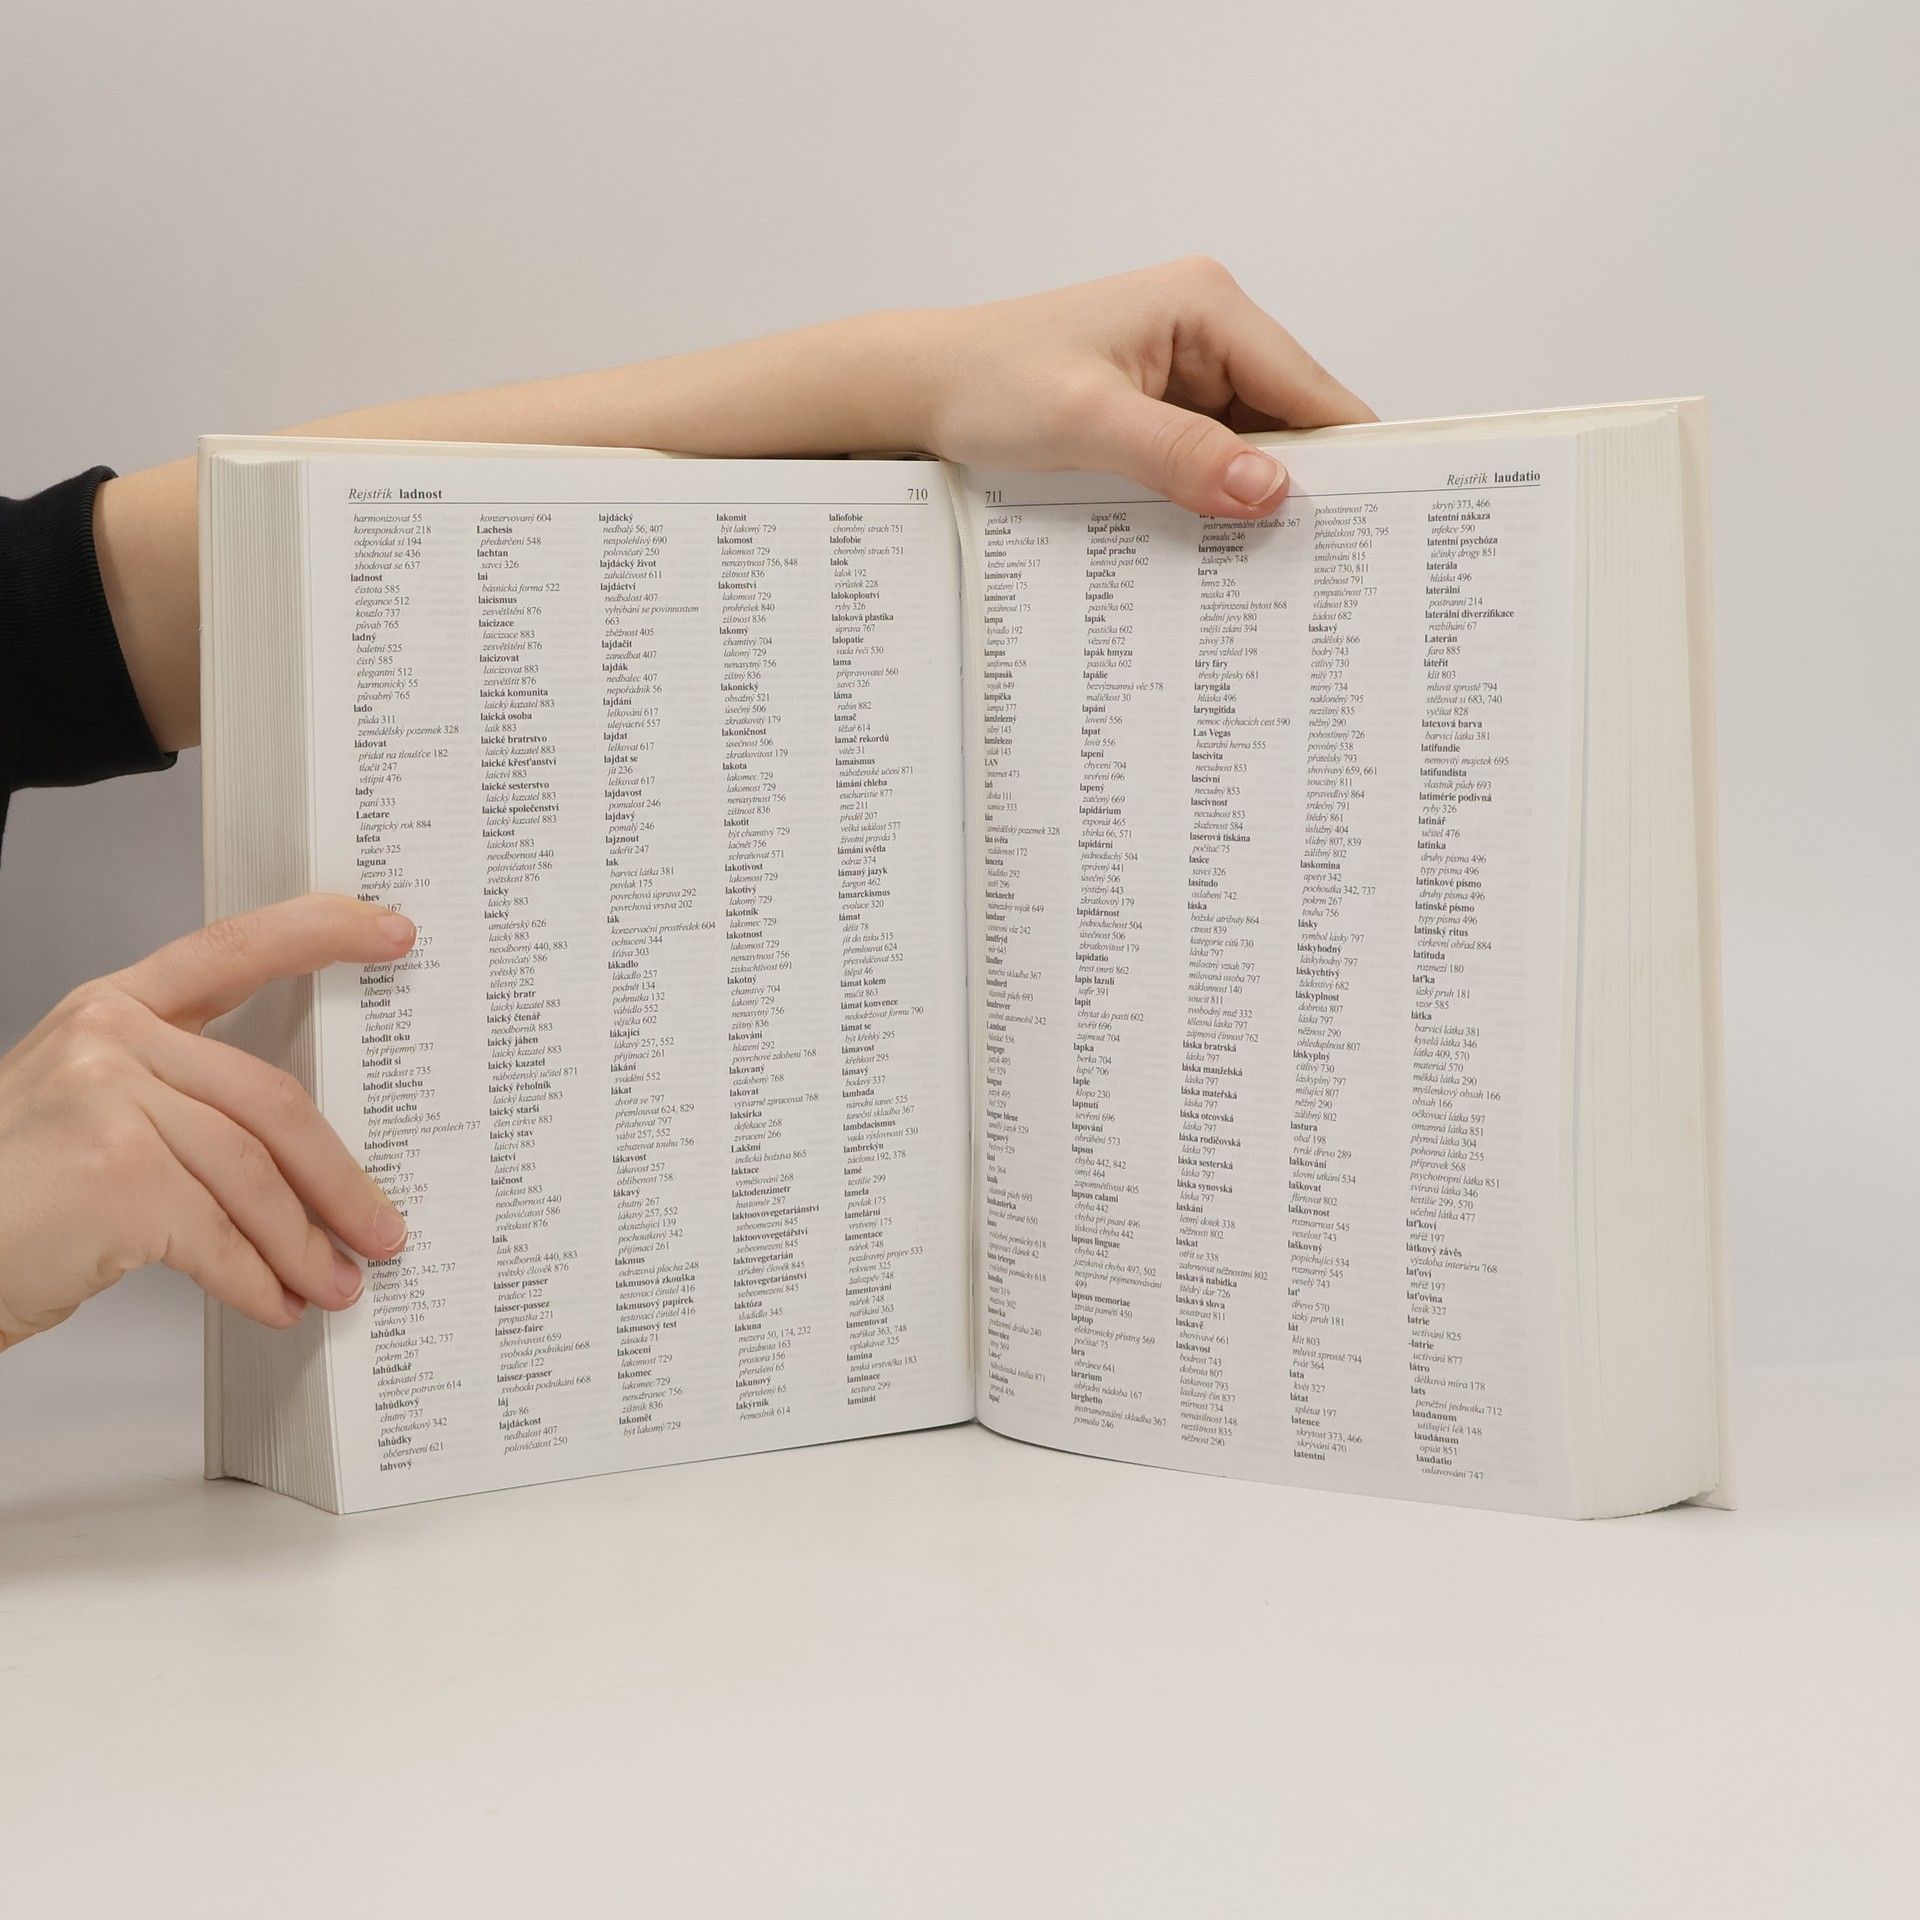 Rejstřík ladnost
710
harmonizovat 55
korespondovat 218
odpovídat si 194
shodnout se 436
shodovat se 637
ladnost
čistota 585
elegance 512
kouzlo 737
půvab 765
ladný
baletní 525
čistý 585
elegantní 512
harmonický 55
půvabný 765
lado
půda 311
zemědělský pozemek 328
ládovat
přidat na tloušťce 182
tlačit 247
vštípit 476
lady
paní 333
Laetare
liturgický rok 884
lafeta
rakev 325
laguna
jezero 312
mořský záliv 310
láhev
167
737
737
tělesný požitek 336
lahodící
líbezný 345
lahodit
chutnat 342
lichotit 829
lahodit oku
být příjemný 737
lahodit si
mít radost z 735
lahodit sluchu
být příjemný 737
lahodit uchu
být melodický 365
být příjemný na poslech 737
lahodivost
chutnost 737
lahodivý
chutný 737
365
737
737
737
lahodný
chutný 267, 342, 737
líbezný 345
lichotivý 829
příjemný 735, 737
vánkový 316
lahůdka
pochoutka 342, 737
pokrm 267
lahůdkář
dodavatel 572
výrobce potravin 614
lahůdkový
chutný 737
pochoutkový 342
lahůdky
občerstvení 621
lahvový
konzervovaný 604
Lachesis
předurčení 548
lachtan
savci 326
lai
básnická forma 522
laicismus
zesvětštění 876
laicizace
laicizace 883
zesvětštění 876
laicizovat
laicizovat 883
zesvětštit 876
laická komunita
laický kazatel 883
laická osoba
laik 883
laické bratrstvo
laický kazatel 883
laické křesťanství
laictví 883
laické sesterstvo
laický kazatel 883
laické společenství
laický kazatel 883
laickost
laickost 883
neodbornost 440
polovičatost 586
světskost 876
laicky
laicky 883
laický
amatérský 626
laický 883
neodborný 440, 883
polovičatý 586
světský 876
tělesný 282
laický bratr
laický kazatel 883
laický čtenář
neodborník 883
laický jáhen
laický kazatel 883
laický kazatel
náboženský učitel 871
laický řeholník
laický kazatel 883
laický starší
člen církve 883
laický stav
laictví 883
laictví
laictví 883
laičnost
laickost 883
neodbornost 440
polovičatost 586
světskost 876
laik
laik 883
neodborník 440, 883
světský člověk 876
laisser passer
tradice 122
laissez-passez
propustka 271
laissez-faire
shovívavost 659
svoboda podnikání 668
tradice 122
laissez-passer
svoboda podnikání 668
láj
dav 86
lajdáckost
nedbalost 407
polovičatost 250
lajdácký
nedbalý 56, 407
nespolehlivý 690
polovičatý 250
lajdácký život
zahálčivost 611
lajdáctví
nedbalost 407
vyhýbání se povinnostem
663
zběžnost 405
lajdačit
zanedbat 407
lajdák
nedbalec 407
nepořádník 56
lajdání
lelkování 617
ulejváctví 557
lajdat
lelkovat 617
lajdat se
jít 236
lelkovat 617
lajdavost
pomalost 246
lajdavý
pomalý 246
lajznout
udeřit 247
lak
barvicí látka 381
povlak 175
povrchová úprava 292
povrchová vrstva 202
lák
konzervační prostředek 604
ochucení 344
šťáva 303
lákadlo
lákadlo 257
podnět 134
pohnutka 132
vábidlo 552
vějička 602
lákající
lákavý 257, 552
přijímací 261
lákání
svádění 552
lákat
dvořit se 797
přemlouvat 624, 829
přitahovat 797
vábit 257, 552
vzbuzovat touhu 756
lákavost
lákavost 257
oblíbenost 758
lákavý
chutný 267
lákavý 257, 552
okouzlující 139
pochoutkový 342
přijímací 261
lakmus
odrazová plocha 248
lakmusová zkouška
testovací činitel 416
lakmusový papírek
testovací činitel 416
lakmusový test
zásada 71
lakocení
lakomost 729
lakomec
lakomec 729
nenažranec 756
zištník 836
lakomět
být lakomý 729
lakomit
být lakomý 729
lakomost
lakomost 729
nenasytnost 756, 848
zištnost 836
lakomství
lakomost 729
prohřešek 840
zištnost 836
lakomý
chamtivý 704
lakomý 729
nenasytný 756
zištný 836
lakonický
obsažný 521
úsečný 506
zkratkovitý 179
lakoničnost
úsečnost 506
zkratkovitost 179
lakota
lakomec 729
lakomost 729
nenasytnost 756
zištnost 836
lakotit
být chamtivý 729
lačnět 756
schraňovat 571
lakotivost
lakomost 729
lakotivý
lakomý 729
lakotník
lakomec 729
lakotnost
lakomost 729
nenasytnost 756
získuchtivost 691
lakotný
chamtivý 704
lakomý 729
nenasytný 756
zištný 836
lakování
hlazení 292
povrchové zdobení 768
lakovaný
ozdobený 768
lakovat
výtvarně zpracovat 768
laksírka
defekace 268
zvracení 266
Lakšmí
indická božstva 865
laktace
vyměšování 268
laktodenzimetr
hustoměr 287
laktoovovegetariánství
sebeomezení 845
laktoovovegetářství
sebeomezení 845
laktovegetarián
střídmý člověk 845
laktovegetariánství
sebeomezení 845
laktóza
sladidlo 345
lakuna
mezera 50, 174, 232
prázdnota 163
prostora 156
přerušení 65
lakunový
přerušený 65
lakýrník
řemeslník 614
laliofobie
chorobný strach 751
lalofobie
chorobný strach 751
lalok
lalok 192
výrůstek 228
lalokoploutví
ryby 326
laloková plastika
úprava 767
lalopatie
vada řeči 530
lama
připravovatel 560
savci 326
láma
rabín 882
lamač
těžař 614
lamač rekordů
vítěz 31
lamaismus
náboženské učení 871
lámání chleba
eucharistie 877
mez 211
předěl 207
velká událost 577
životní pravda 3
lámání světla
odraz 374
lámaný jazyk
žargon 462
lamarckismus
evoluce 320
lámat
dělit 78
jít do tisku 515
přemlouvat 624
přesvědčovat 552
štěpit 46
lámat kolem
mučit 863
lámat konvence
nedodržovat formu 790
lámat se
být křehký 295
lámavost
křehkost 295
lámavý
bodavý 337
lambada
národní tanec 525
taneční skladba 367
lambdacismus
vada výslovnosti 530
lambrekýn
záclona 192, 378
lamé
textilie 299
lamela
povlak 175
lamelární
vrstvený 175
lamentace
nářek 748
pozdravný projev 533
rekviem 325
žalozpěv 748
lamentování
nářek 748
naříkání 363
lamentovat
naříkat 363, 748
oplakávat 325
lamina
tenká vrstvička 183
laminace
textura 299
laminát
711
Rejstřík laudatio
povlak 175
laminka
tenká vrstvička 183
lamino
knižní umění 517
laminovaný
potažený 175
laminovat
potáhnout 175
lampa
kyvadlo 192
lampa 377
lampas
uniforma 658
lampasák
voják 649
lampička
lampa 377
lamželezný
silný 143
lamželezo
silák 143
LAN
internet 473
laň
dívka 111
samice 333
lán
zemědělský pozemek 328
lán světa
vzdálenost 172
lanceta
hladítko 292
ostří 296
lancknecht
námezdný voják 649
landaur
cestovní vůz 242
landfrýd
mír 645
ländler
taneční skladba 367
landlord
vlastník půdy 693
landrover
osobní automobil 242
Landsat
hledač 556
langage
jazyk 495
řeč 529
langue
jazyk 495
řeč 529
langue bleue
umělý jazyk 529
languový
řečový 529
laní
hry 364
laník
vlastník půdy 693
lankasterka
lovecké zbraně 650
lano
cvičební pomůcky 618
spojovací článek 42
lano triceps
cvičební pomůcky 618
lanolin
mast 319
mazivo 302
lanovka
podzemní dráha 240
Lao-c'
středoasijská kniha 871
Laokoón
prorok 456
lapač
lapač 602
lapač písku
iontová past 602
lapač prachu
iontová past 602
lapačka
pastička 602
lapadlo
pastička 602
lapák
pastička 602
vězení 672
lapák hmyzu
pastička 602
lapálie
bezvýznamná věc 578
maličkost 30
lapání
lovení 556
lapat
lovit 556
lapení
chycení 704
sevření 696
lapený
zatčený 669
lapidárium
exponát 465
sbírka 66, 571
lapidární
jednoduchý 504
správný 441
úsečný 506
výstižný 443
zkratkovitý 179
lapidárnost
jednoduchost 504
úsečnost 506
zkratkovitost 179
lapidatio
trest smrti 862
lapis lazuli
safír 391
lapit
chytat do pasti 602
sevřít 696
zajmout 704
lapka
berka 704
lupič 706
laple
klopa 230
lapnutí
sevření 696
lapování
obrábění 573
lapsus
chyba 442, 842
omyl 464
zapomnětlivost 405
lapsus calami
chyba 442
chyba při psaní 496
tisková chyba 442
lapsus linguae
chyba 442
jazyková chyba 497, 502
nesprávné pojmenovávání
499
lapsus memoriae
ztráta paměti 450
laptop
elektronický přístroj 569
počítač 75
lara
obránce 641
lararium
obřadní nádoba 167
larghetto
instrumentální skladba 367
pomalu 246
instrumentální skladba 367
pomalu 246
larmoyance
žalozpěv 748
larva
hmyz 326
maska 470
nadpřirozená bytost 868
okultní jevy 880
vnější zdání 394
závoj 378
zevní vzhled 198
láry fáry
třesky plesky 681
laryngála
hláska 496
laryngitida
nemoc dýchacích cest 590
Las Vegas
hazardní herna 555
lascivita
necudnost 853
lascivní
necudný 853
lascivnost
necudnost 853
zkaženost 584
laserová tiskárna
počítač 75
lasice
savci 326
lasitudo
oslabení 742
láska
božské atributy 864
ctnost 839
kategorie citů 730
láska 797
milostný vztah 797
milovaná osoba 797
náklonnost 140
soucit 811
svobodný muž 332
tělesná láska 797
zájmová činnost 762
láska bratrská
láska 797
láska manželská
láska 797
láska mateřská
láska 797
láska otcovská
láska 797
láska rodičovská
láska 797
láska sesterská
láska 797
láska synovská
láska 797
laskání
letmý dotek 338
něžnosti 802
laskat
otřít se 338
zahrnovat něžnostmi 802
laskavá nabídka
štědrý dar 726
laskavá slova
soustrast 811
laskavě
shovívavě 661
laskavost
bodrost 743
dobrota 807
laskavost 793
laskavý čin 837
mírnost 734
nenásilnost 148
nezištnost 835
něžnost 290
pohostinnost 726
povolnost 538
přátelskost 793, 795
shovívavost 661
smilování 815
soucit 730, 811
srdečnost 791
sympatičnost 737
vlídnost 839
žádost 682
laskavý
andělský 866
bodrý 743
citlivý 730
milý 737
mírný 734
nakloněný 795
nezištný 835
něžný 290
pohostinný 726
povolný 538
přátelský 793
shovívavý 659, 661
soucitný 811
spravedlivý 864
srdečný 791
štědrý 861
úslužný 404
vlídný 807, 839
zálibný 802
laskomina
apetyt 342
pochoutka 342, 737
pokrm 267
touha 756
lásky
symbol lásky 797
láskyhodný
láskyhodný 797
láskychtivý
žádostivý 682
láskyplnost
dobrota 807
láska 797
něžnost 290
ohleduplnost 807
láskyplný
citlivý 730
láskyplný 797
milující 807
něžný 290
zálibný 802
lastura
obal 198
tvrdé dřevo 289
laškování
slovní utkání 534
laškovat
flirtovat 802
laškovnost
rozmarnost 545
veselost 743
laškovný
popichující 534
rozmarný 545
veselý 743
lať
dřevo 570
úzký pruh 181
lát
klít 803
mluvit sprostě 794
řvát 364
lata
květ 327
látat
splétat 197
latence
skrytost 373, 466
skrývání 470
latentní
skrytý 373, 466
latentní nákaza
infekce 590
latentní psychóza
účinky drogy 851
laterála
hláska 496
laterální
postranní 214
laterální diverzifikace
rozbíhání 67
Laterán
fara 885
láteřit
klít 803
mluvit sprostě 794
stěžovat si 683, 740
vyčítat 828
latexová barva
barvicí látka 381
latifundie
nemovitý majetek 695
latifundista
vlastník půdy 693
latimérie podivná
ryby 326
latinář
učitel 476
latinka
druhy písma 496
typy písma 496
latinkové písmo
druhy písma 496
latinské písmo
typy písma 496
latinský ritus
církevní obřad 884
latituda
rozmezí 180
laťka
úzký pruh 181
vzor 585
látka
barvicí látka 381
kyselá látka 346
látka 409, 570
materiál 570
měkká látka 290
myšlenkový obsah 166
obsah 166
očkovací látka 597
omamná látka 851
plynná látka 304
pohonná látka 255
přípravek 568
psychotropní látka 851
svíravá látka 346
textilie 299, 570
učební látka 477
laťkoví
mříž 197
látkový závěs
výzdoba interiéru 768
laťoví
mříž 197
laťovina
lesík 327
latrie
uctívání 825
-latrie
uctívání 877
látro
délková míra 178
lats
peněžní jednotka 712
laudanum
utišující lék 148
laudánum
opiát 851
laudatio
oslavování 747